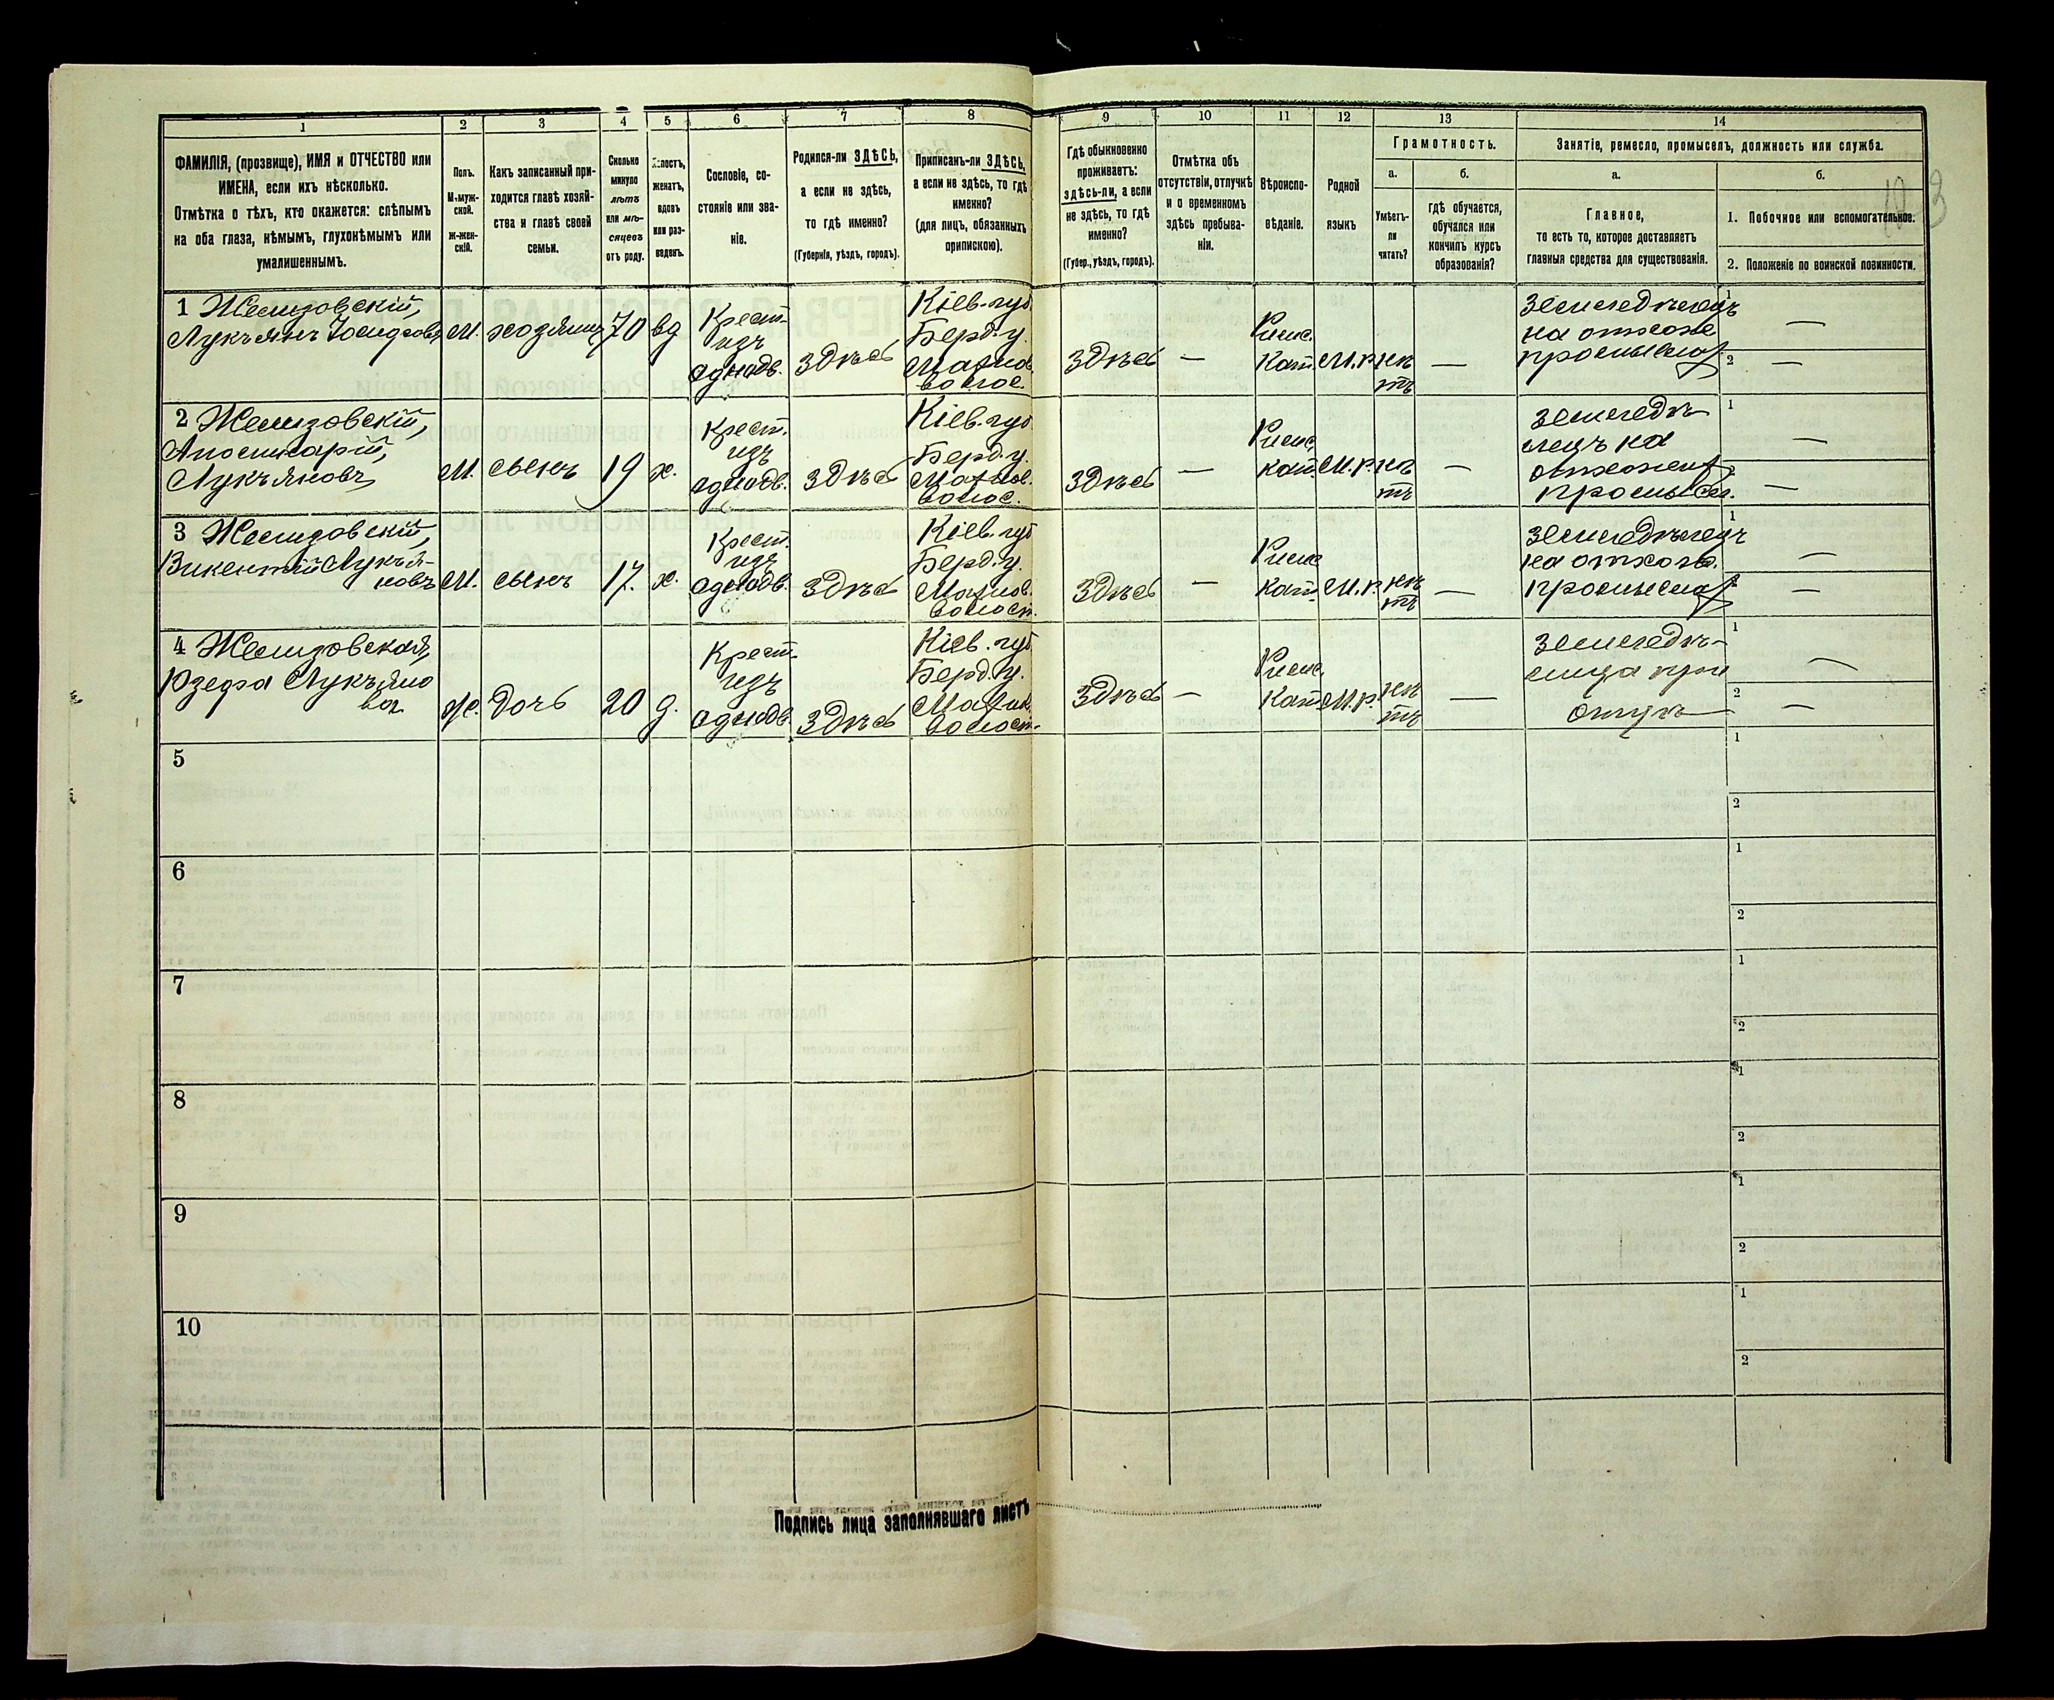 1 2 3 4 5 6 7 8 9 10 11 12 13 14
ФАМИЛІЯ, (прозвище), ИМЯ и ОТЧЕСТВО или
ИМЕНА, если ихъ нѣсколько.
Отмѣтка о тѣхъ, кто окажется: слѣпымъ
на оба глаза, нѣмымъ, глухонѣмымъ или
умалишеннымъ.
Полъ.
М-муж-
ской.
ж-жен-
скій.
Какъ записанный при-
ходится главѣ хозяй-
ства и главѣ своей
семьи.
Сколько
минуло
лѣтъ
или мѣ-
сяцевъ
отъ роду.
Холостъ,
женатъ,
вдовъ
или раз-
веденъ.
Сословіе, со-
стояніе или зва-
ніе.
Родился-ли ЗДѢСЬ,
а если не здѣсь,
то гдѣ именно?
(Губернія, уѣздъ, городъ).
Приписанъ-ли ЗДѢСЬ,
а если не здѣсь, то гдѣ
именно?
(для лицъ, обязанныхъ
припискою).
Гдѣ обыкновенно
проживаетъ:
здѣсь-ли, а если
не здѣсь, то гдѣ
именно?
(Губер., уѣздъ, городъ).
Отмѣтка объ
отсутствіи, отлучкѣ
и о временномъ
здѣсь пребыва-
ніи.
Вѣроиспо-
вѣданіе.
Родной
языкъ
Грамотность.
а.
Умѣетъ-
ли
читать?
б.
гдѣ обучается,
обучался или
кончилъ курсъ
образованія?
Занятіе, ремесло, промыселъ, должность или служба.
а.
Главное,
то есть то, которое доставляетъ
главныя средства для существованія.
б.
1. Побочное или вспомогательное.
2. Положеніе по воинской повинности.
1
Лукъянъ
М. хозяинъ 70 вд
Крест.
изъ
однодв.
Здѣсь
Кіев. губ
Берд. у.
волос.
Здѣсь —
Римс.
Кат. М.р. нѣ
тъ —
1 —
2 —
2
Лукъяновъ
М. сынъ 19 х.
Крест.
изъ
однодв.
Здѣсь
Кіев. губ
Берд. у.
волос.
Здѣсь —
Римс.
кат. М.р. нѣ
тъ —
землед​ѣ
лецъ на
1 —
2 —
3
Викентій Лукъя-
новъ М. сынъ 17. х.
Крест.
изъ
однодв.
Здѣсь
Кіев. губ
Берд. у.
волост.
Здѣсь —
Римс.
кат. М.р. нѣ
тъ —
1 —
2 —
4
Юзефа Лукъяно
ва
ж. дочь 20 д.
Крест.
изъ
однодв.
Здѣсь
Кіев. губ
Берд. у.
волост.
Здѣсь —
Римс.
Кат. М.р. нѣ
тъ —
земледѣ-
лица при
отцѣ
1 —
2 —
5 1
2
6 1
2
7 1
2
8 1
2
9 1
2
10 1
2
Подпись лица заполнявшаго листъ